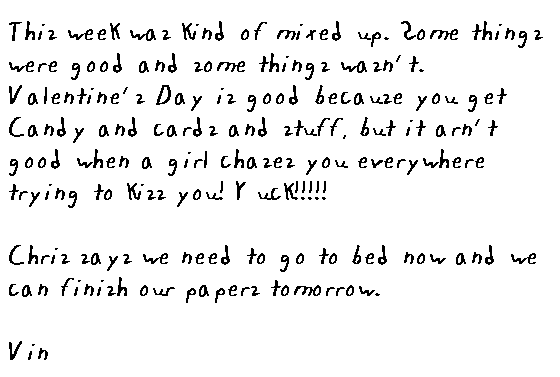 This week was kind of mixed up. Some things
were good and some things wasn't.
Valentine's Day is good because you get
Candy and cards and stuff, but it arn't
good when a girl chases you everywhere
trying to kiss you! Yuck!!!!!
Chris says we need to go to bed now and we
can finish our papers tomorrow.
Vin